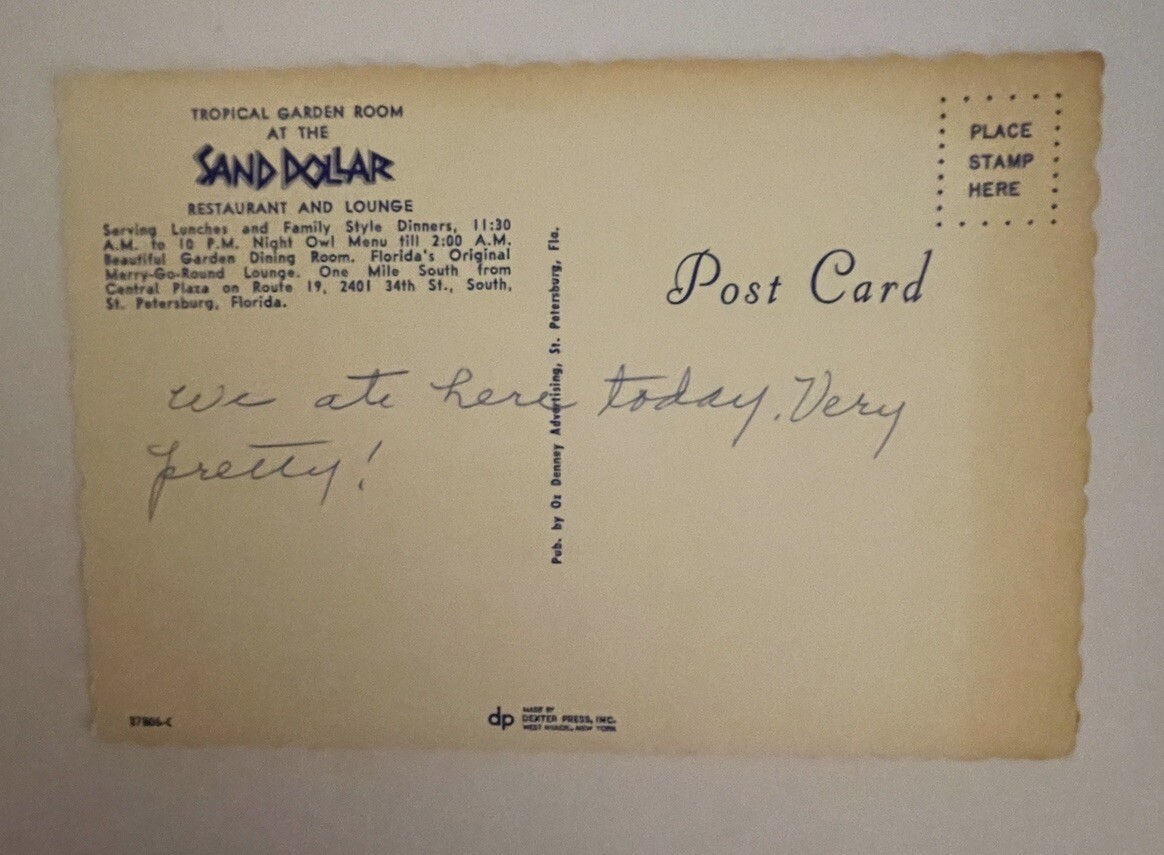 TROPICAL GARDEN ROOM
AT THE
SAND DOLLAR
RESTAURANT AND LOUNGE
Serving Lunches and Family Style Dinners, 11:30
A.M. to 10 P.M. Night Owl Menu till 2:00 A.M.
Beautiful Garden Dining Room. Florida's Original
Merry-Go-Round Lounge. One Mile South from
Central Plaza on Route 19, 2401 34th St., South,
St. Petersburg, Florida.
PLACE
STAMP
HERE
Post Card
Pub. by Oz Denney Advertising, St. Petersburg, Fla.
We ate here today. Very
pretty!
37806-C
dp
MADE BY
DEXTER PRESS, INC.
WEST NYACK, NEW YORK